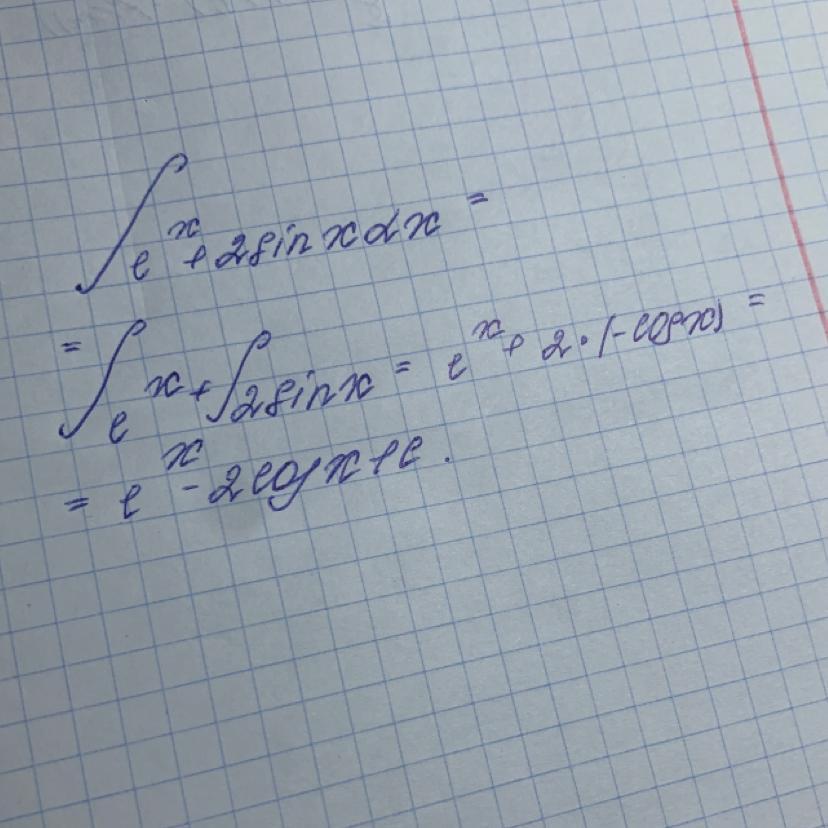 ∫ e^x + 2 sin x dx =
= ∫ e^x + ∫ 2 sin x = e^x + 2 · (-cos x) =
= e^x - 2 cos x + c.